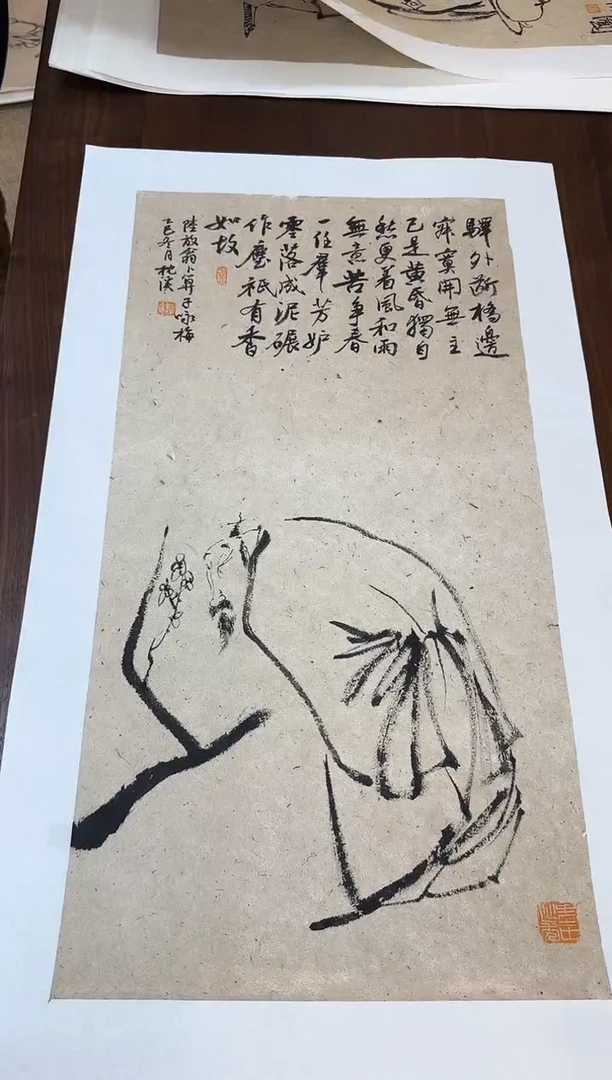 驛外斷橋邊
寂寞開無主
已是黄昏獨自
愁更着風和雨
無意苦争春
一任羣芳妒
零落成泥碾
作塵祇有香
如故
陸放翁卜算子詠梅
乙巳冬月